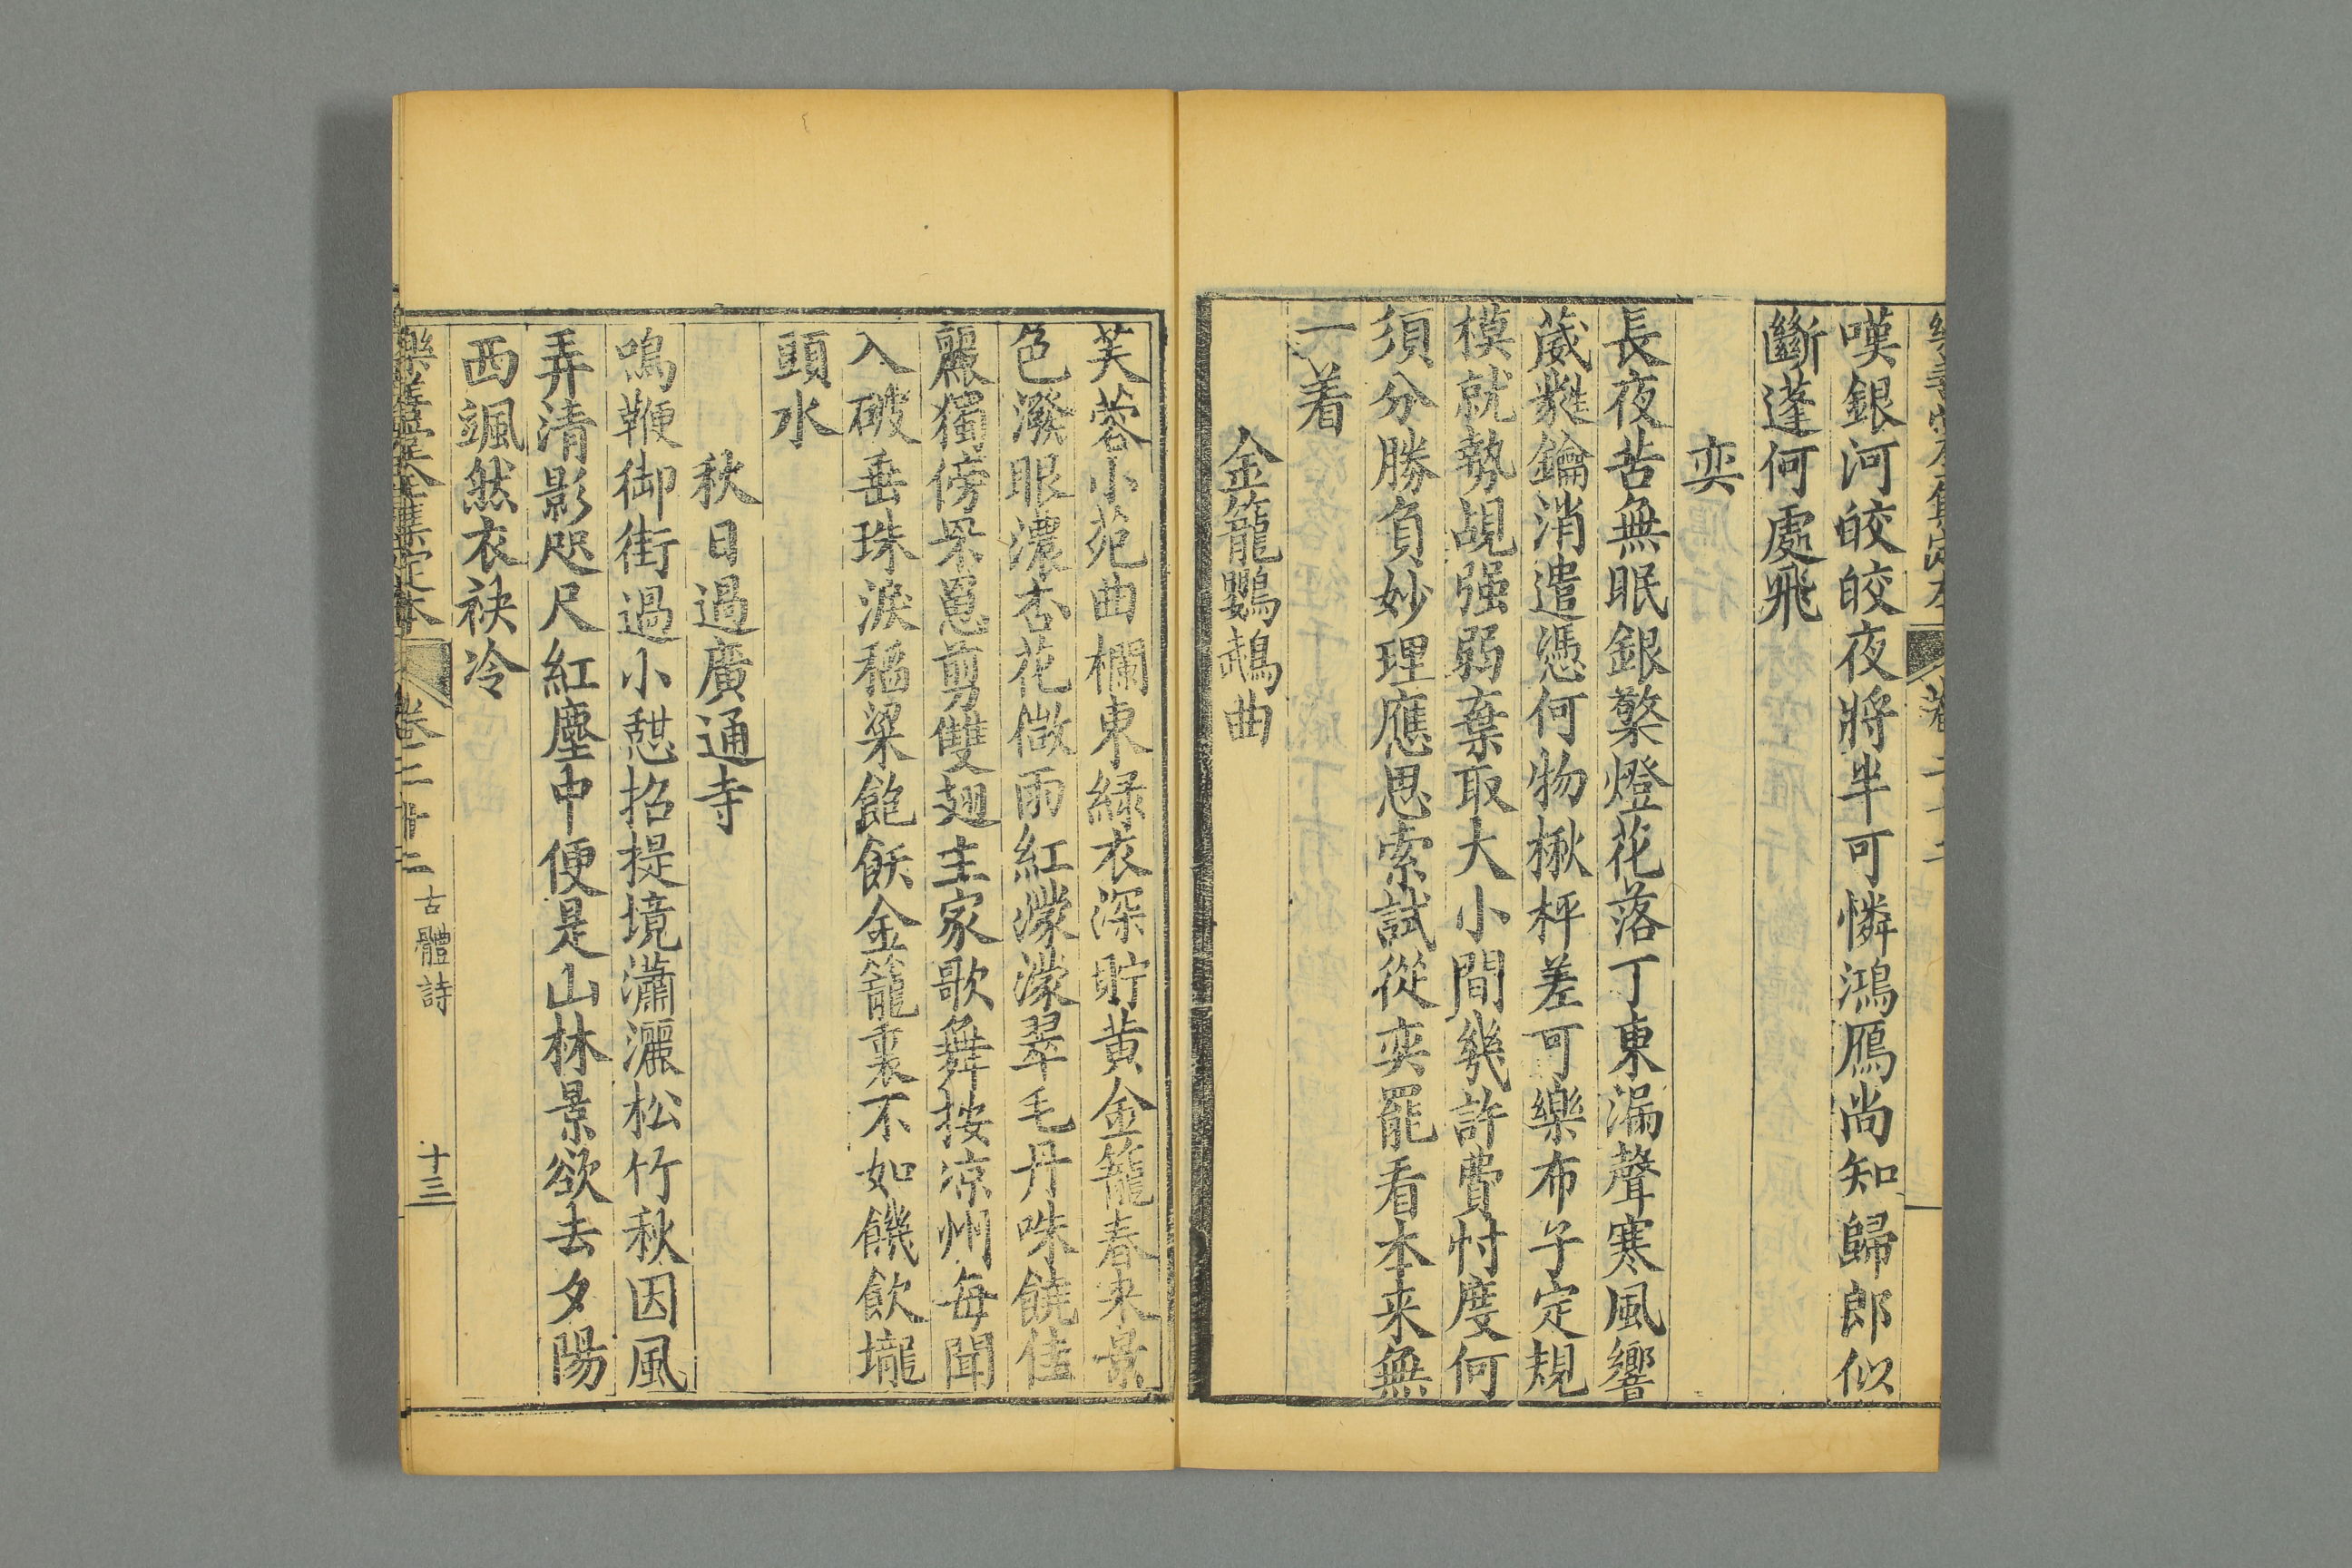 嘆銀河皎皎夜將半可憐鴻鴈尚知歸郎似
斷蓬何處飛
奕
長夜苦無眠銀檠燈花落丁東漏聲寒風響
葳蕤鑰消遣憑何物楸枰差可樂布子定規
模就勢覘强弱棄取大小間幾許費忖度何
須分勝負妙理應思索試從奕罷看本来無
一着
金籠鸚鵡曲
芙蓉小苑曲欄東緑衣深貯黄金籠春来景
色潑眼濃杏花微雨紅濛濛翠毛丹咮饒佳
麗獨傍罘罳剪雙翅主家歌舞按凉州每聞
入破垂珠淚稻粱飽飫金籠裏不如饑飲壠
頭水
秋日過廣通寺
鳴鞭御街過小憩招提境瀟灑松竹秋因風
弄清影咫尺紅塵中便是山林景欲去夕陽
西颯然衣袂冷
樂善堂全集定本 卷二十二 古體詩 十三